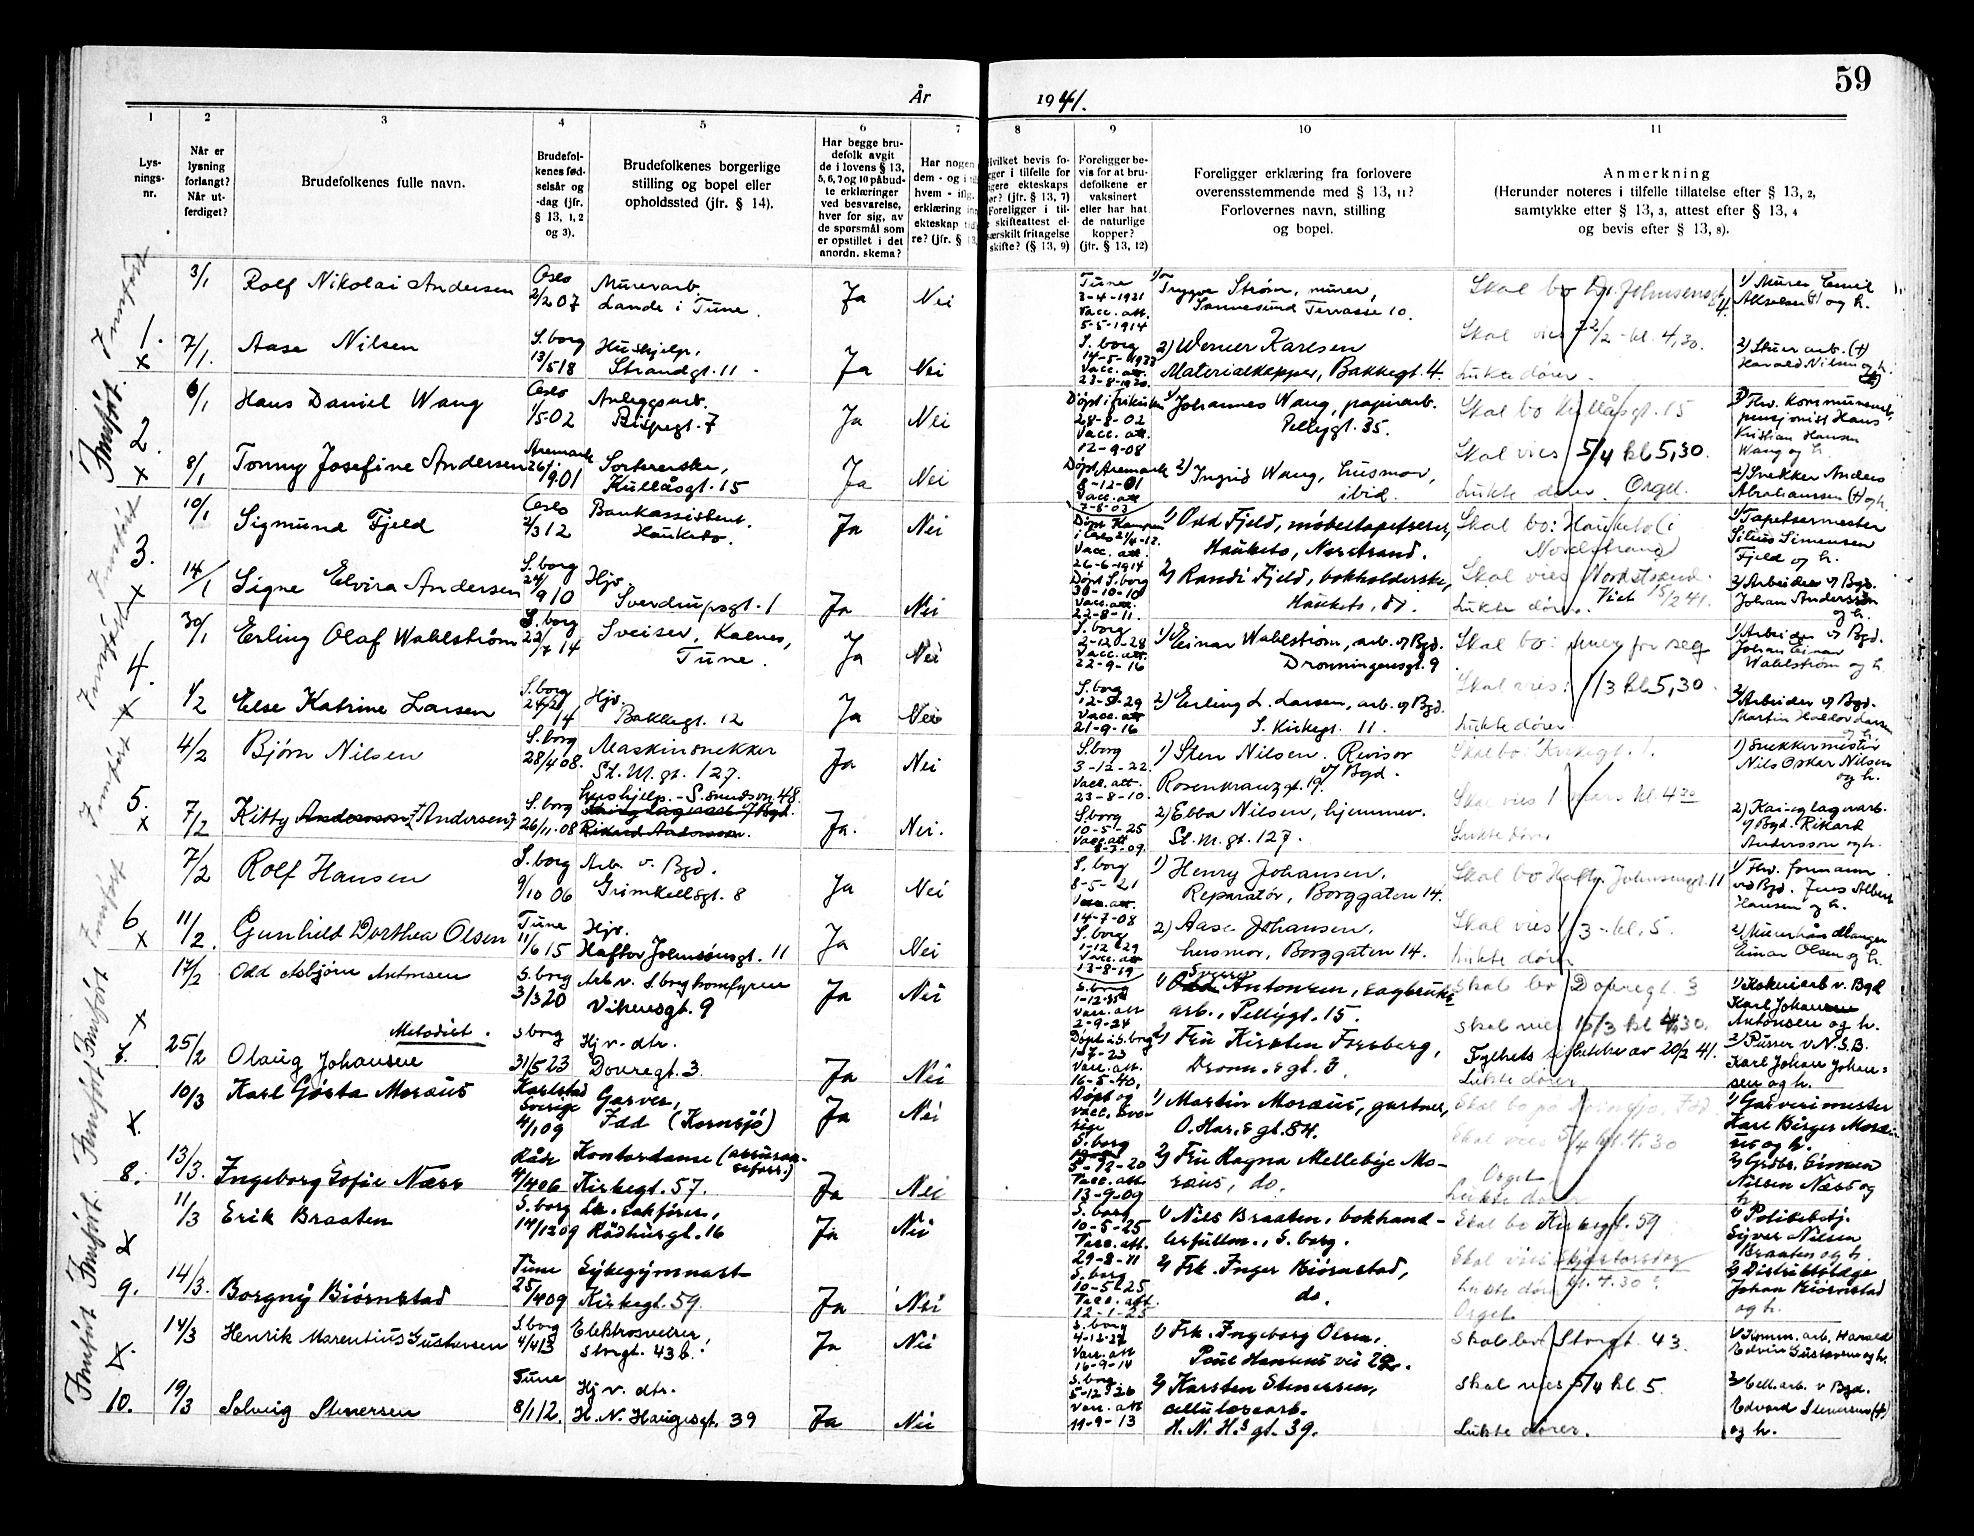 År
1941.
59
1
2
3
4
5
6
7
8
9
10
11
Lys-
nings-
nr.
Når er
lysning
forlangt?
Når ut-
ferdiget?
Brudefolkenes fulle navn.
Brudefol-
kenes fød-
selsår og
-dag (jfr.
§ 13, 1, 2
og 3).
Brudefolkenes borgerlige
stilling og bopel eller
opholdssted (jfr. § 14).
Har begge bru-
defolk avgit
de i lovens § 13,
5, 6, 7 og 10 påbud-
te erklæringer
ved besvarelse,
hver for sig, av
de spørsmål som
er opstillet i det
anordn. skema?
Har nogen
dem - og i
hvem - iflg.
erklæring
ekteskap
re? (jfr. § 13,
Hvilket bevis fo-
ekteskaps
(jfr. § 13, 7)
Foreligger i til-
skifteattest el-
særskilt fritagelse
skifte? (§ 13, 9)
Foreligger be-
vis for at bru-
defolkene er
vaksinert
eller har hat
de naturlige
kopper?
(jfr. § 13, 12)
Foreligger erklæring fra forlovere
overensstemmende med § 13, 11?
Forlovernes navn, stilling
og bopel.
Anmerkning
(Herunder noteres i tilfelle tillatelse efter § 13, 2,
samtykke etter § 13, 3, attest efter § 13, 4
og bevis efter § 13, 8).
Innført
1.
x
3/1 Rolf Nikolai Andersen Oslo 2/2 07 Murerarb. Lande i Tune. Ja Nei
Tune 3-4-1921 Vacc. att. 5-5-1914
Trygve Strøm, murer, Sannesund Terrasse 10.
Skal vies 22/2 - kl. 4,30.
1) Murer Emil Akselsen (+) og h.
7/1. Aase Nilsen S. borg 13/5 18 Hushjelp, Strandgt. 11 Ja Nei
S. borg
2) Werner Karlsen Materialkapper, Bakkegt. 4.
Lukte dører.
Harald Nilsen og h.
Innført.
2.
x
6/1 Hans Daniel Wang Oslo 1/5-02 Anleggsarb. Bispegt. 7 Ja Nei
28-8-02 Vacc. att. 12-9-08
1) Johannes Wang, papirarb. Pellygt. 35.
Skal bo Kullåsgt. 15
Hans Kristian Hansen Wang og h.
8/1 Tonny Josefine Andersen Aremark 26/1 1901 Kullåsgt. 15 Ja Nei
Døpt Aremark 8-12-01 Vacc. att. 7-8-03
2) Ingrid Wang, husmor, ibid.
Skal vies 5/4 kl 5,30.
Lukte dører. Orgel.
2) Snekker Anders Abrahamsen (+) og h.
Innført
3.
x
10/1 Sigmund Fjeld Oslo 2/3 12 Bankassistent. Hauketo. Ja Nei
Vacc. att. 26-6-1914
1) Odd Fjeld, møbeltapetserer, Hauketo, Nordstrand.
Skal bo: Hauketo i Nordstrand
1) Tapetsermester Simensen Fjeld og h.
14/1 Signe Elvira Andersen S. borg 24/9 10 Hjv. Sverdrupsgt. 1 Ja Nei
Døpt S. borg 30-10-10 Vacc. att. 22-8-11.
2) Randi Fjeld, bokholderske, Hauketo,
Skal vies Nordstrand.
Lukte dører. Viet 15/2 41.
2) Arbeider v/ Bgd. Johan Andersson og h.
Innført
4.
x
30/1 Erling Olaf Wahlstrøm S. borg 22/7 14 Sveiser, Kalnes, Tune. Ja Nei
S. borg 2-12-28 Vacc. att. 22-9-16
1) Einar Wahlstrøm, arb. v/ Bgd. Dronningensgt. 9
Skal bo: hver for seg
1) Arbeider v/ Bgd. Johan Einar Wahlstrøm og h.
1/2 Else Katrine Larsen S. borg 14 Hjv. Bakkegt. 12 Ja Nei
S. borg 12-5-29 Vacc. att. 21-9-16
2) Erling L. Larsen, arb. v/ Bgd. S. Kirkegt. 11.
Skal vies: 1/3 kl 5,30.
Lukte dører
2) Arbeider v/ Bgd. Martin Halvor Larsen og h.
Innført
5.
x
4/2 Bjørn Nilsen S. borg 28/4 08. Maskinsnekker St. M. gt. 127. Ja Nei
S. borg 3-12-22. Vacc. att. 23-8-10
1) Sten Nilsen. Revisor v/ Bgd. Rosenkranzgt. 19.
Skal bo: Kirkegt. 1.
1) Snekkermester Nils Oskar Nilsen og h.
7/2 Kitty Andersson Andersen S. borg 26/11-08 Hushjelp. Rikard Andersson. Ja. Nei.
S. borg 10-5-25 Vacc. att. 8-3-09.
2) Ebba Nilsen, hjemmev. St. M. gt. 127.
Skal vies 1 mars kl. 4 30
Lukte dører
v/ Bgd. Rikard Andersson og h.
Innført
6
x
7/2 Rolf Hansen S. borg 9/10 06 Arb. v. Bgd. Grimkellsgt. 8 Ja Nei
S. borg 8-5-21 Vacc. att. 14-7-08
1) Henry Johansen, Reparatør, Borggaten 14.
Skal bo Haftor Johnsensgt. 11
1) Fhv. formann ved Bgd. Jens Albert Hansen og h.
11/2. Gunhild Dorthea Olsen Tune 11/6 15 Hjv. Haftor Johnsensgt. 11 Ja Nei
S. borg 1-12-29 Vacc. att 13-8-19
2) Aase Johansen, husmor, Borggaten 14.
Skal vies 1/3 - kl. 5.
Lukte dører
2) Murerhåndlanger Einar Olsen og h.
Innført
7.
x
17/2 Odd Asbjørn Antonsen S. borg 3/3 20 Arb v. Sborg komfyren Vikensgt. 9 Ja Nei
S. borg 1-12-35 Vacc. att 2-9-24
1) Odd Sverre Antonsen, sagbruks arb., Pellygt. 15.
Skal bo Dovregt. 3
1) Kokeriarb v. Bgd Karl Johan Antonsen og h.
25/2 Olaug Johansen Metodist. S borg 31/5 23 Hj v. dtr. Dovregt. 3. Ja Nei
Døpt i S. borg 1-7-23 Vacc. att. 16-5-40,
2) Fru Kirsten Forsberg, Dronn.s gt. 3.
Skal vies 15/3 kl 4,30.
Lukte dører
2) Pusser v N.S.B. Karl Johan Johansen og h.
Innført
8.
x.
10/3 Karl Gösta Moræus Karlstad Sverige 4/1 09 Garver, Idd (Kornsjö) Ja Nei
Døpt og vacc. Sverige
1) Martin Moræus, gartner, O. Har.s gt. 84.
1) Garverimester Karl Birger Moræus og h.
13/3. Ingeborg Sofie Næss Råde 4/4 06 Kontordame (assuranseforr.) Kirkegt. 57. Ja Nei
S. borg 5-12-20 Vacc. att. 13-9-09
2) Fru Ragna Mellebye Moræus, do.
Skal vies 5/4 kl. 4.30
Orgel
Lukte dører
Nilsen Næss og h.
Innført.
9.
x
11/3 Erik Braaten S. borg 14/12 09 Lk. sakfører, Rådhusgt. 16 Ja Nei
S. borg 10-5-25 Vacc. att. 29-8-11
1) Nils Braaten, bokhandlerfullm., S. borg.
Skal bo Kirkegt. 59
1) Politibetj. Syver Nilsen Braaten og h.
14/3. Borgny Biørnstad Tune 25/4 09 Sykegymnast Kirkegt. 59. Ja Nei
S. borg 10-5-25 Vacc. att. 12-1-25
2) Frk. Inger Biørnstad, do.
Skal vies kl. 4.30
Lukte dører
Orgel
2) Distriktslege Johan Biørnstad og h.
Innført
10.
x.
14/3 Henrik Marentius Gustavsen S. borg 4/4 13 Elektrosveiser, Storgt. 43 b. Ja Nei
S. borg 4-12-27 Vacc. att 16-9-14
1) Frk. Ingeborg Olsen, Poul Hansens vei 22.
Skal bo Storgt. 43.
1) Komm. arb. Harald Edvin Gustavsen og h.
19/3 Solveig Stenersen Tune 8/1 12. Hj v. dtr. H. N. Haugesgt. 39 Ja Nei
S. borg 5-12-26 Vacc. att 11-9-13
2) Karsten Stenersen, cellulosearb. H. N. H.s gt. 39.
Skal vies 5/4 kl 5.
Lukte dører.
2) Cell. arb. v Bgd. Edvard Stenersen (+) og h.